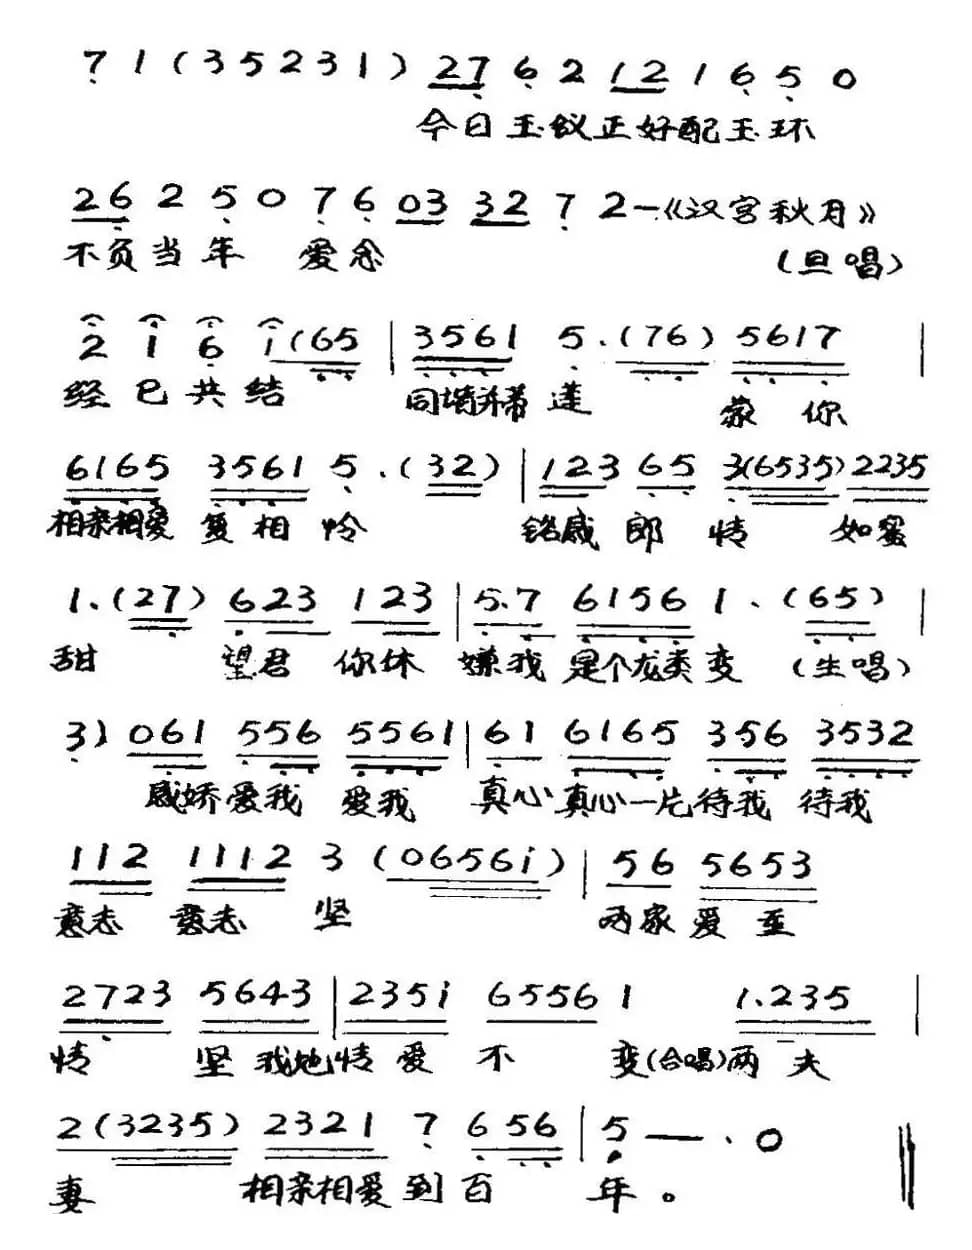 7 1 ( 3 5 2 3 1 ) 2 7 6 2 1 2 1 6 5 0
今日玉蚁正好配玉环
2 6 2 5 0 7 6 0 3 3 2 7 2 — 《汉宫秋月》
不负当年 爱念 (旦唱)
2 1 6 i ( 6 5 | 3 5 6 1 5 . ( 7 6 ) 5 6 1 7 |
经已共结 同墙并蒂莲 蒙你
6 1 6 5 3 5 6 1 5 . ( 3 2 ) | 1 2 3 6 5 3 ( 6 5 3 5 ) 2 2 3 5
相亲相爱 复相怜 铭感郎情 如蜜
1 . ( 2 7 ) 6 2 3 1 2 3 | 5 . 7 6 1 5 6 1 . ( 6 5 ) |
甜 望君 你休 嫌我 是个龙类变 (生唱)
3 ) 0 6 1 5 5 6 5 5 6 1 | 6 1 6 1 6 5 3 5 6 3 5 3 2
感娇爱我 爱我 真心真心一片待我 待我
1 1 2 1 1 1 2 3 ( 0 6 5 6 i ) | 5 6 5 6 5 3
意志 意志 坚 两家爱至
2 7 2 3 5 6 4 3 | 2 3 5 i 6 5 5 6 1 1 . 2 3 5 |
情 坚我她情爱不 变(合唱)两夫
2 ( 3 2 3 5 ) 2 3 2 1 7 6 5 6 | 5 — . 0
妻 相亲相爱到百 年。